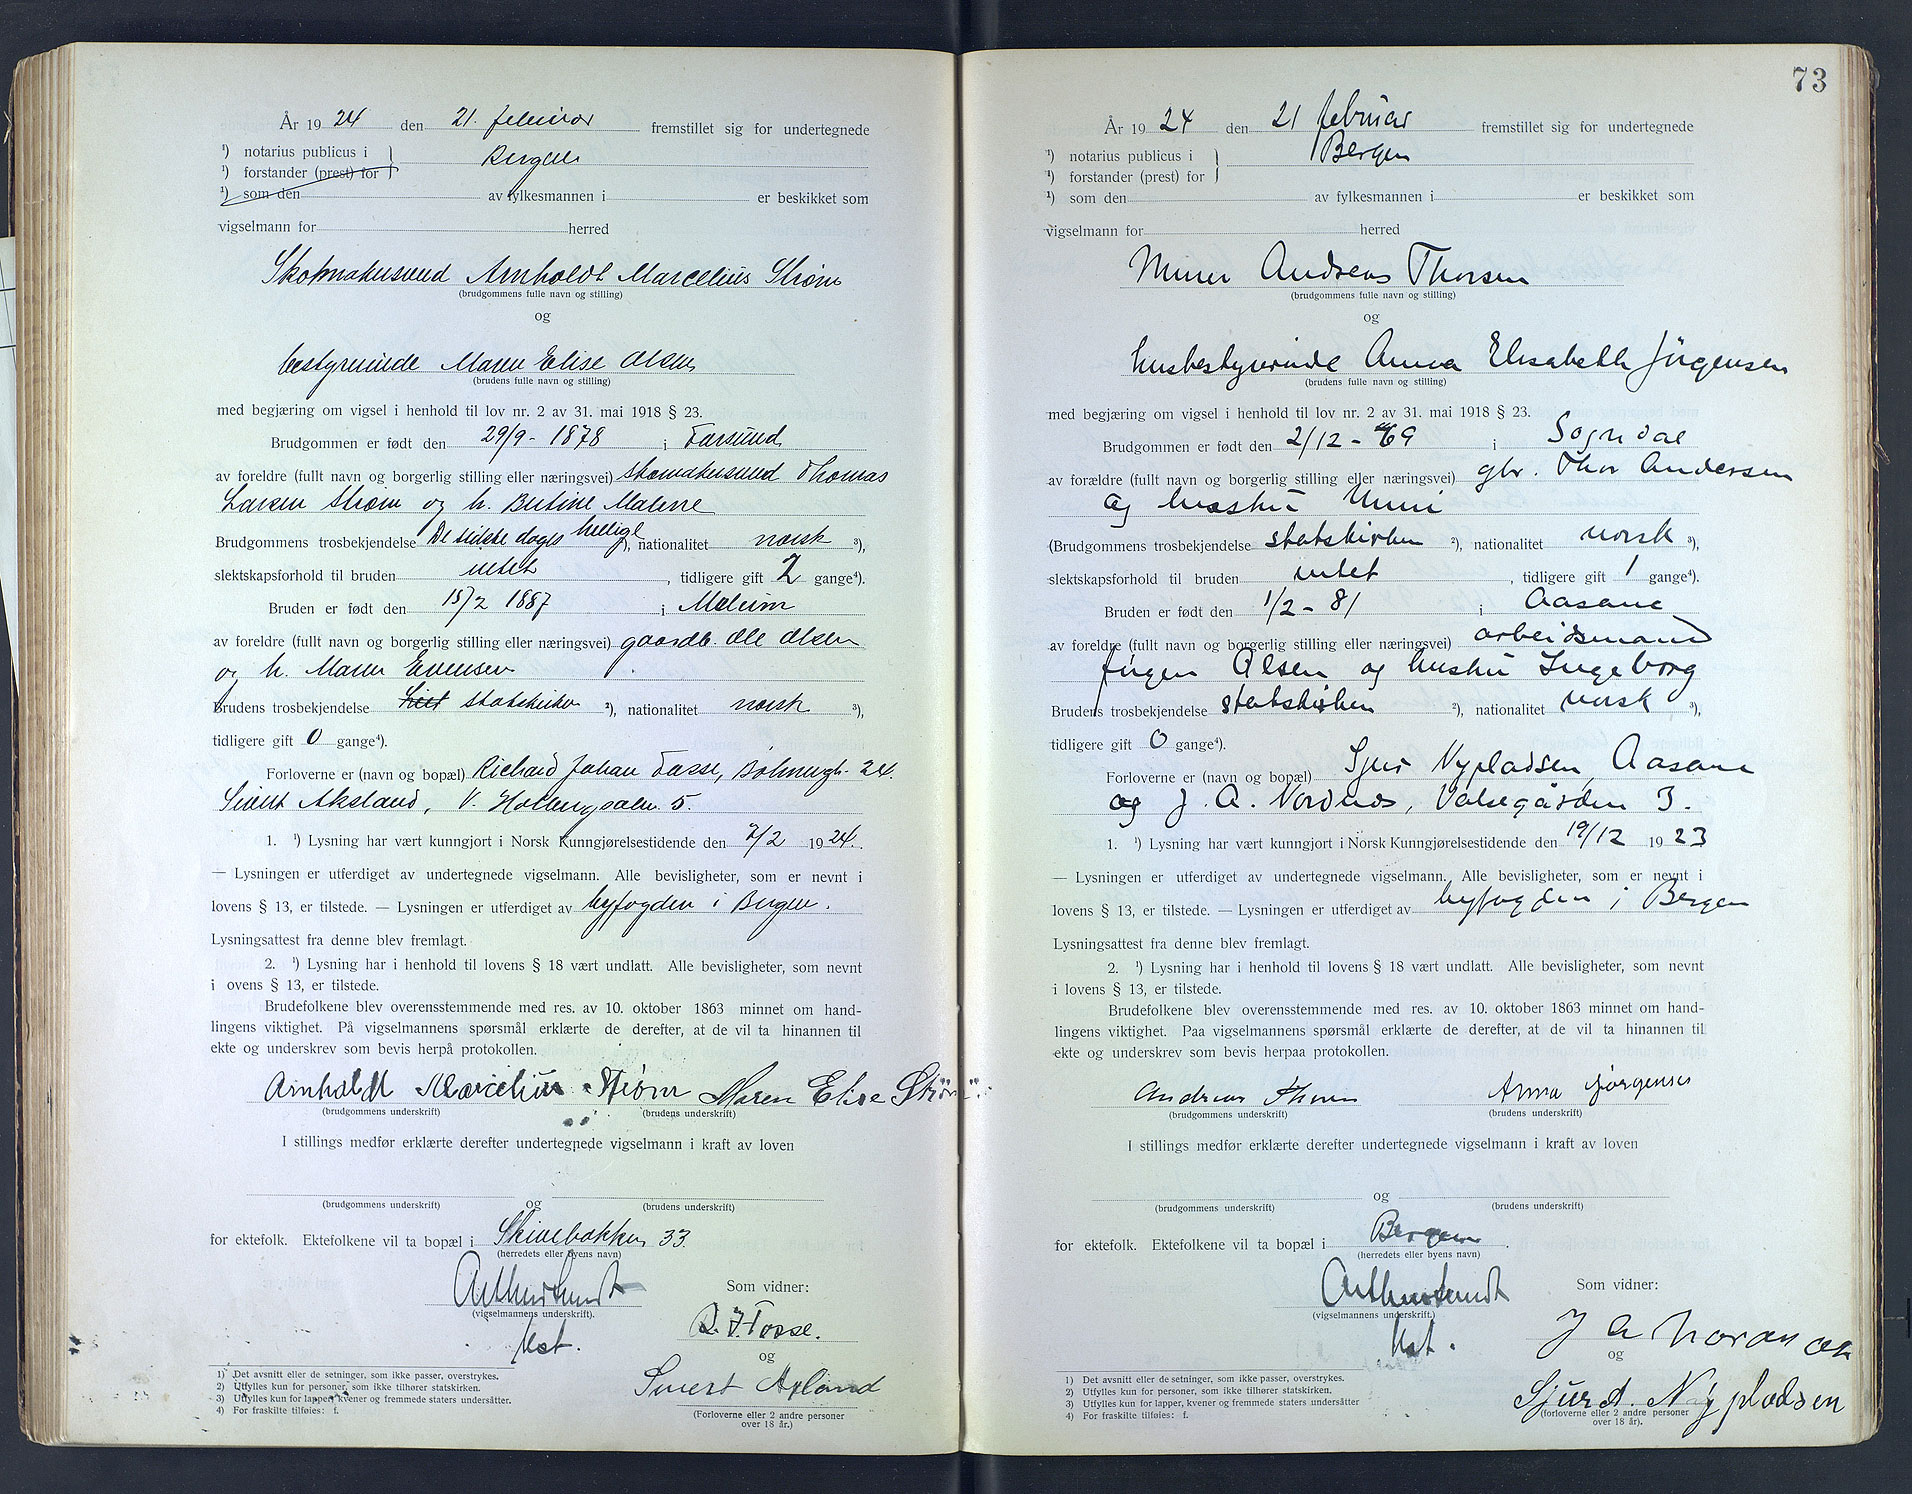 År 1924 den 21. februar fremstillet sig for undertegnede
¹) notarius publicus i } Bergen
¹) forstander (prest) for
¹) som den av fylkesmannen i er beskikket som
vigselmann for herred
Skomakersvend Arnholdt Marcelius Strøm
(brudgommens fulle navn og stilling)
og
bestyrerinde Maren Elise Olsen
(brudens fulle navn og stilling)
med begjæring om vigsel i henhold til lov nr. 2 av 31. mai 1918 § 23.
Brudgommen er født den 29/9 - 1878 i Farsund
av foreldre (fullt navn og borgerlig stilling eller næringsvei) skomakersvend Thomas
Larsen Strøm og h. Bertine Malene
Brudgommens trosbekjendelse De sidste dages hellige ²), nationalitet norsk ³),
slektskapsforhold til bruden intet, tidligere gift 2 gange⁴).
Bruden er født den 15/2 1887 i
av foreldre (fullt navn og borgerlig stilling eller næringsvei) gaardb. Ole Olsen
og h. Maren Evensen
Brudens trosbekjendelse statskirken ²), nationalitet norsk ³),
tidligere gift 0 gange⁴).
Forloverne er (navn og bopæl) Richard Johan Fosse, 24.
Sivert Aksland, V. 5.
1. ¹) Lysning har vært kunngjort i Norsk Kunngjørelsestidende den 7/2 1924.
— Lysningen er utferdiget av undertegnede vigselmann. Alle bevisligheter, som er nevnt i
lovens § 13, er tilstede. — Lysningen er utferdiget av byfogden i Bergen.
Lysningsattest fra denne blev fremlagt.
2. ¹) Lysning har i henhold til lovens § 18 vært undlatt. Alle bevisligheter, som nevnt
i ovens § 13, er tilstede.
Brudefolkene blev overensstemmende med res. av 10. oktober 1863 minnet om hand-
lingens viktighet. På vigselmannens spørsmål erklærte de derefter, at de vil ta hinannen til
ekte og underskrev som bevis herpå protokollen.
Arnholdt Marcelius Strøm Maren Elise Strøm
(brudgommens underskrift) (brudens underskrift)
I stillings medfør erklærte derefter undertegnede vigselmann i kraft av loven
og
(brudgommens underskrift) (brudens underskrift)
for ektefolk. Ektefolkene vil ta bopæl i Skivebakken 33
(herredets eller byens navn)
(vigselmannens underskrift).
Som vidner:
R. J. Fosse.
og
Sivert Axland
(Forloverne eller 2 andre personer
over 18 år.)
1) Det avsnitt eller de setninger, som ikke passer, overstrykes.
2) Utfylles kun for personer, som ikke tilhører statskirken.
3) Utfylles kun for lapper, kvener og fremmede staters undersåtter.
4) For fraskilte tilføies: f.
73
År 1924 den 21 februar fremstillet sig for undertegnede
¹) notarius publicus i } Bergen
¹) forstander (prest) for
¹) som den av fylkesmannen i er beskikket som
vigselmann for herred
Murer Andreas Thorsen
(brudgommens fulle navn og stilling)
og
husbestyrerinde Anna Elisabeth Jürgensen
(brudens fulle navn og stilling)
med begjæring om vigsel i henhold til lov nr. 2 av 31. mai 1918 § 23.
Brudgommen er født den 2/12 - 69 i Sogndal
av forældre (fullt navn og borgerlig stilling eller næringsvei) gbr. Thor Andersen
og hustru Unni
(Brudgommens trosbekjendelse statskirken ²), nationalitet norsk ³),
slektskapsforhold til bruden intet, tidligere gift 1 gange⁴).
Bruden er født den 1/2 - 81 i Aasane
av foreldre (fullt navn og borgerlig stilling eller næringsvei) arbeidsmand
Jürgen Olsen og hustru Ingeborg
Brudens trosbekjendelse statskirken ²), nationalitet norsk ³),
tidligere gift 0 gange⁴).
Forloverne er (navn og bopæl) Sjur Nypladsen, Aasane
og J. A. Nordnes, 3.
1. ¹) Lysning har vært kunngjort i Norsk Kunngjørelsestidende den 19/12 1923
— Lysningen er utferdiget av undertegnede vigselmann. Alle bevisligheter, som er nevnt i
lovens § 13, er tilstede. — Lysningen er utferdiget av byfogden i Bergen
Lysningsattest fra denne blev fremlagt.
2. ¹) Lysning har i henhold til lovens § 18 vært undlatt. Alle bevisligheter, som nevnt
i lovens § 13, er tilstede.
Brudefolkene blev overensstemmende med res. av 10. oktober 1863 minnet om hand-
lingens viktighet. Paa vigselmannens spørsmål erklærte de derefter, at de vil ta hinannen til
ekte og underskrev som bevis herpaa protokollen.
Andreas Thorsen Anna Jørgensen
(brudgommens underskrift) (brudens underskrift)
I stillings medfør erklærte derefter undertegnede vigselmann i kraft av loven
og
(brudgommens underskrift) (brudens underskrift)
for ektefolk. Ektefolkene vil ta bopæl i Bergen.
(herredets eller byens navn)
(vigselmannens underskrift.)
Som vidner:
J A Nordnes
og
Sjurd. Nyplodsen
(forloverne eller 2 andre personer
over 18 år).
1) Det avsnitt eller de setninger, som ikke passer, overstrykes.
2) Utfylles kun for personer, som ikke tilhører statskirken.
3) Utfylles kun for lapper, kvener og fremmede staters undersåtter
4) For fraskilte tilføies: f.